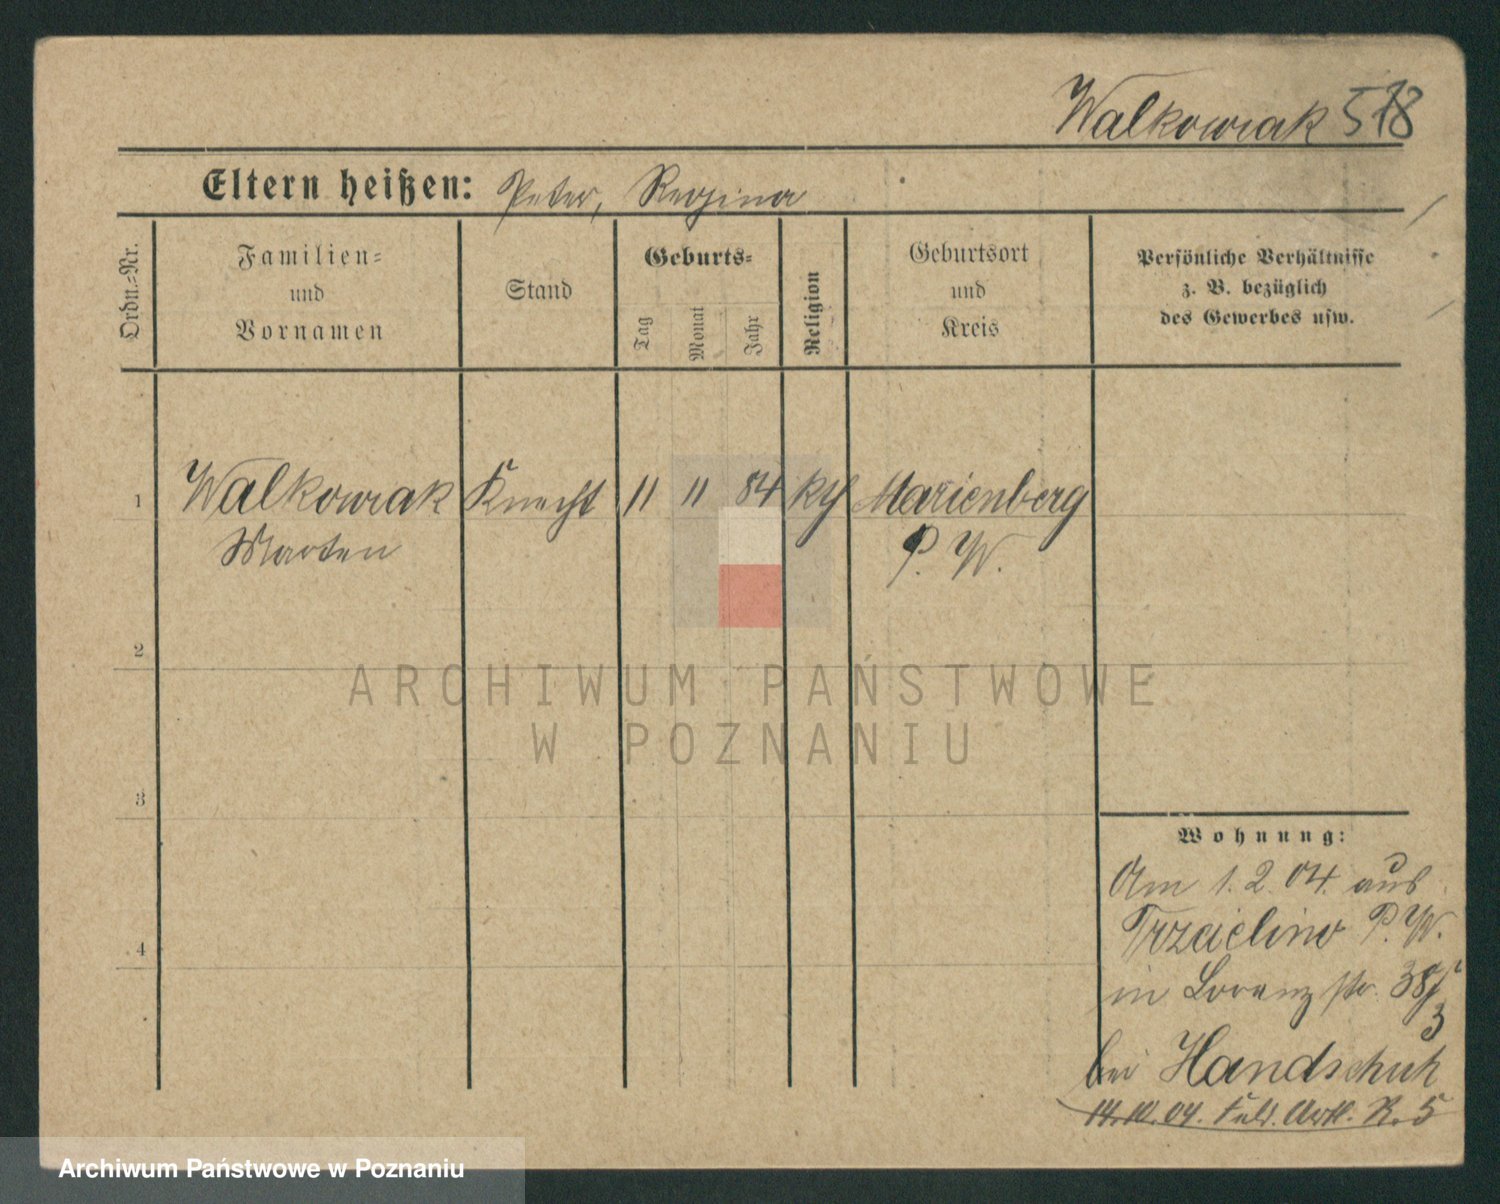 Walkowiak 518
Eltern heißen: Peter, Regina
Ordn.-Nr.
Familien-
und
Vornamen
Stand
Geburts-
Tag
Monat
Jahr
Religion
Geburtsort
und
Kreis
Persönliche Verhältnisse
z. B. bezüglich
des Gewerbes usw.
1 Walkowiak Knecht 11 11 84 kth Marienberg
Marten P. W.
2
ARCHIWUM PAŃSTWOWE
W POZNANIU
3
Wohnung:
Am 1.2.04. aus
Trzcielino P. W.
in Lorenzstr. 38
3
4
bei Handschuh
14.10.04. Feld. Artl. R. 5
Archiwum Państwowe w Poznaniu